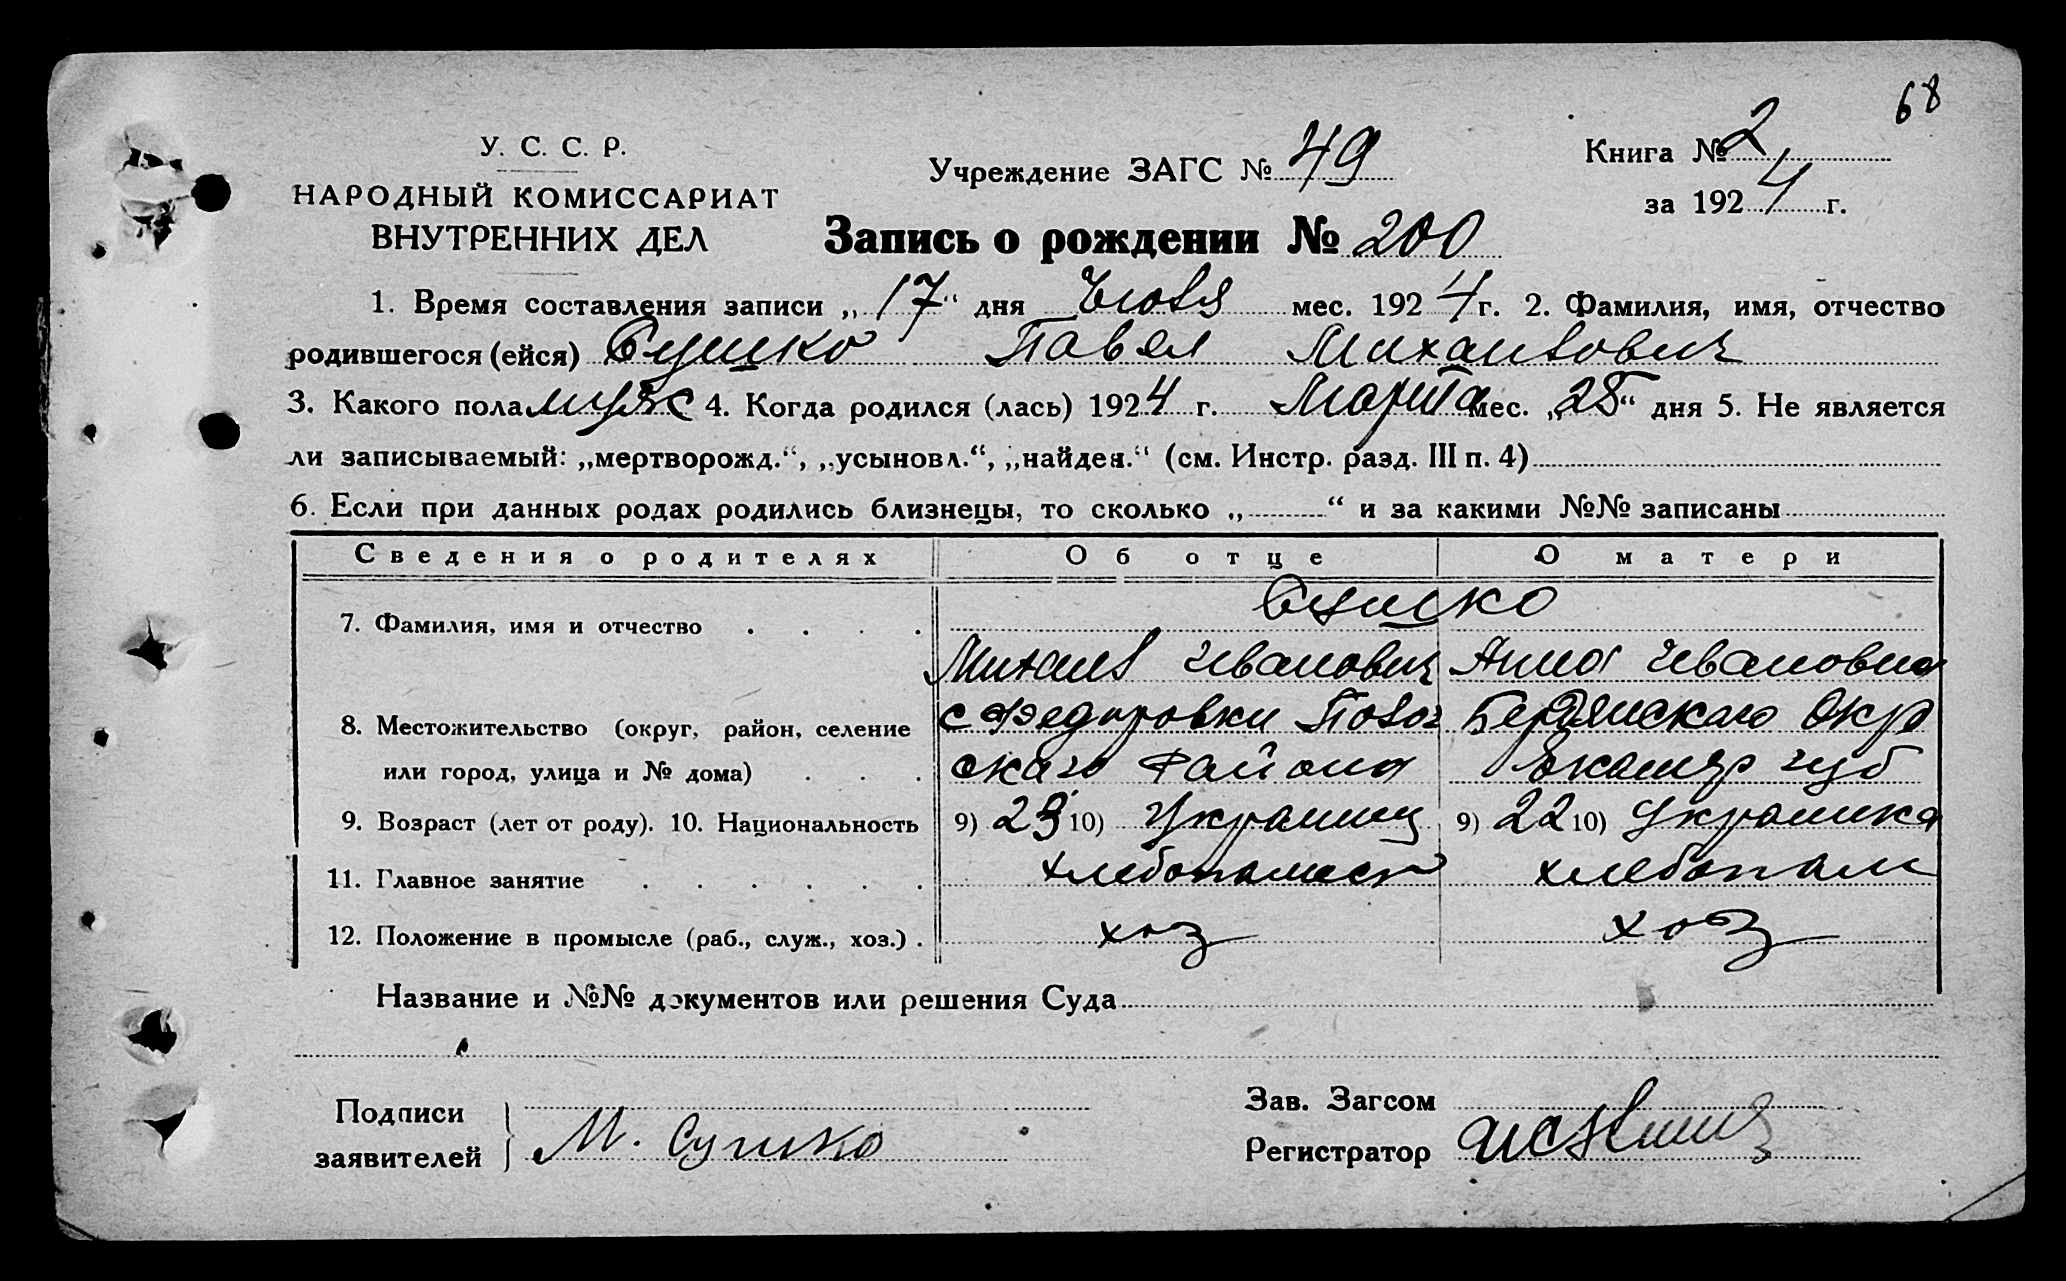 68
У. С. С. Р.
НАРОДНЫЙ КОМИССАРИАТ
ВНУТРЕННИХ ДЕЛ
Учреждение ЗАГС № 49
Книга № 2
за 1924 г.
Запись о рождении № 200
1. Время составления записи „17“ дня Июля мес. 1924 г. 2. Фамилия, имя, отчество
родившегося (ейся) Сушко Павел Михайлович
3. Какого пола муж 4. Когда родился (лась) 1924 г. Марта мес. „25“ дня 5. Не является
ли записываемый: „мертворожд.“, „усыновл.“, „найден.“ (см. Инстр. разд. III п. 4)
6. Если при данных родах родились близнецы, то сколько „ “ и за какими №№ записаны
Сведения о родителях Об отце О матери
7. Фамилия, имя и отчество Сушко
Михаил Иванович Анна Ивановна
8. Местожительство (округ, район, селение с Федоровки Бердянскаго Окр
или город, улица и № дома) скаго Района Екатер губ
9. Возраст (лет от роду). 10. Национальность 9) 10) Украинец 9) 22 10) Украинка
11. Главное занятие хлебопашест хлебопаш
12. Положение в промысле (раб., служ., хоз.) хоз хоз
Название и №№ документов или решения Суда
Подписи
заявителей М. Сушко
Зав. Загсом
Регистратор